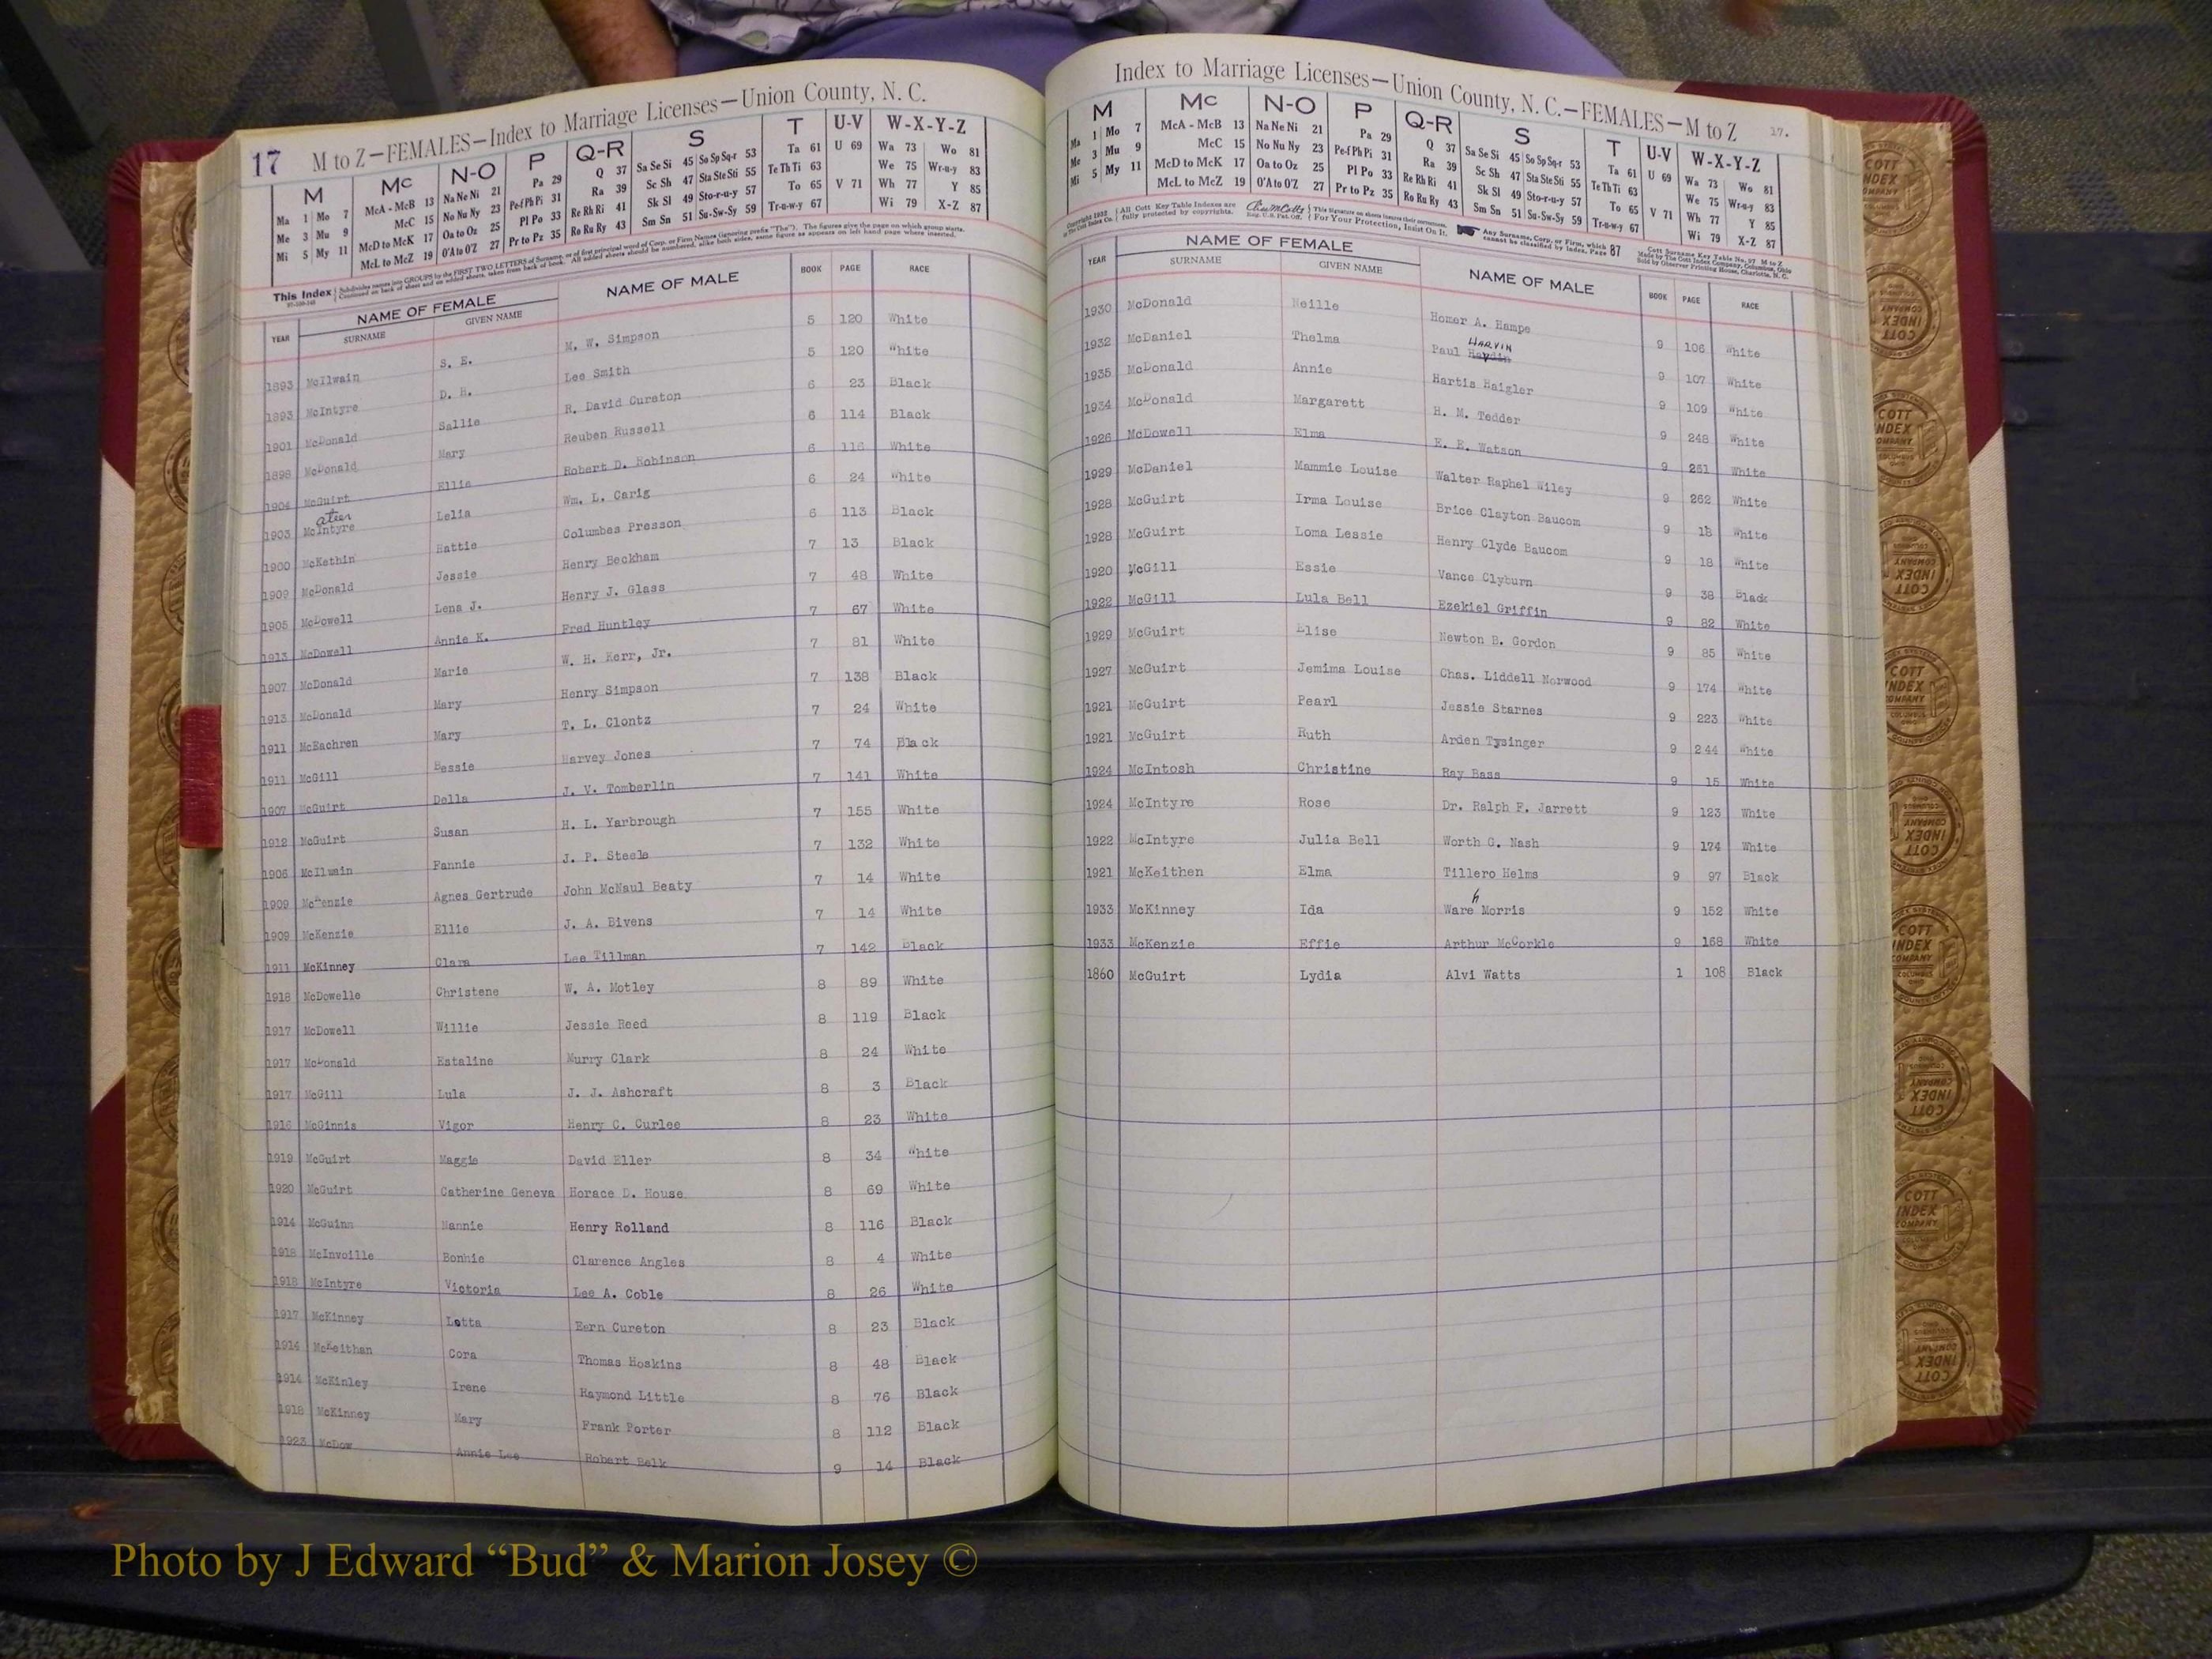 17 M to Z—FEMALES—Index to Marriage Licenses—Union County, N. C.
M Mc N-O P Q-R S T U-V W-X-Y-Z
Ma 1 Mo 7 McA - McB 13 Na Ne Ni 21 Pa 29 Q 37 Sa Se Si 45 So Sp Sq-r 53 Ta 61 U 69 Wa 73 Wo 81
Me 3 Mu 9 McC 15 No Nu Ny 23 Pe-f Ph Pi 31 Ra 39 Sc Sh 47 Sta Ste Sti 55 Te Th Ti 63 We 75 Wr-u-y 83
Mi 5 My 11 McD to McK 17 Oa to Oz 25 Pl Po 33 Re Rh Ri 41 Sk Sl 49 Sto-r-u-y 57 To 65 V 71 Wh 77 Y 85
McL to McZ 19 O'A to O'Z 27 Pr to Pz 35 Ro Ru Ry 43 Sm Sn 51 Su-Sw-Sy 59 Tr-u-w-y 67 Wi 79 X-Z 87
This Index
YEAR NAME OF FEMALE NAME OF MALE BOOK PAGE RACE
SURNAME GIVEN NAME
1893 McIlwain S. E. M. W. Simpson 5 120 White
1893 McIntyre D. B. Lee Smith 5 120 White
1901 McDonald Sallie R. David Cureton 6 23 Black
1898 McDonald Mary Reuben Russell 6 114 Black
1904 McGuirt Ellie Robert D. Robinson 6 116 White
ateer
1903 McIntyre Lelia Wm. L. Carig 6 24 White
1900 McKethin Hattie Columbes Presson 6 113 Black
1909 McDonald Jessie Henry Beckham 7 13 Black
1905 McDowell Lena J. Henry J. Glass 7 48 White
1913 McDowell Annie K. Fred Huntley 7 67 White
1907 McDonald Marie W. H. Kerr, Jr. 7 81 White
1913 McDonald Mary Henry Simpson 7 138 Black
1911 McEachren Mary T. L. Clontz 7 24 White
1911 McGill Bessie Harvey Jones 7 74 Black
1907 McGuirt Della J. V. Tomberlin 7 141 White
1912 McGuirt Susan H. L. Yarbrough 7 155 White
1906 McIlwain Fannie J. P. Steele 7 132 White
1909 McKenzie Agnes Gertrude John McNaul Beaty 7 14 White
1909 McKenzie Ellie J. A. Bivens 7 14 White
1911 McKinney Clara Lee Tillman 7 142 Black
1918 McDowelle Christene W. A. Motley 8 89 White
1917 McDowell Willie Jessie Reed 8 119 Black
1917 McDonald Estaline Murry Clark 8 24 White
1917 McGill Lula J. J. Ashcraft 8 3 Black
1916 McGinnis Vigor Henry C. Curlee 8 23 White
1919 McGuirt Maggie David Eller 8 34 White
1920 McGuirt Catherine Geneva Horace D. House 8 69 White
1914 McGuinn Nannie Henry Rolland 8 116 Black
1918 McInvoille Bonnie Clarence Angles 8 4 White
1918 McIntyre Victoria Lee A. Coble 8 26 White
1917 McKinney Lotta Eern Cureton 8 23 Black
1914 McKeithan Cora Thomas Hoskins 8 48 Black
1914 McKinley Irene Raymond Little 8 76 Black
1918 McKinney Mary Frank Porter 8 112 Black
1923 McDow Annie Lee Robert Belk 9 14 Black
Index to Marriage Licenses—Union County, N. C.—FEMALES—M to Z 17.
M Mc N-O P Q-R S T U-V W-X-Y-Z
Ma 1 Mo 7 McA - McB 13 Na Ne Ni 21 Pa 29 Q 37 Sa Se Si 45 So Sp Sq-r 53 Ta 61 U 69 Wa 73 Wo 81
Me 3 Mu 9 McC 15 No Nu Ny 23 Pe-f Ph Pi 31 Ra 39 Sc Sh 47 Sta Ste Sti 55 Te Th Ti 63 We 75 Wr-u-y 83
Mi 5 My 11 McD to McK 17 Oa to Oz 25 Pl Po 33 Re Rh Ri 41 Sk Sl 49 Sto-r-u-y 57 To 65 V 71 Wh 77 Y 85
McL to McZ 19 O'A to O'Z 27 Pr to Pz 35 Ro Ru Ry 43 Sm Sn 51 Su-Sw-Sy 59 Tr-u-w-y 67 Wi 79 X-Z 87
YEAR NAME OF FEMALE NAME OF MALE BOOK PAGE RACE
SURNAME GIVEN NAME
1930 McDonald Neille Homer A. Hampe 9 106 White
HARVIN
1932 McDaniel Thelma Paul Haydin 9 107 White
1935 McDonald Annie Hartis Haigler 9 109 White
1934 McDonald Margarett H. M. Tedder 9 248 White
1926 McDowell Elma E. E. Watson 9 251 White
1929 McDaniel Mammie Louise Walter Raphel Wiley 9 262 White
1928 McGuirt Irma Louise Brice Clayton Baucom 9 18 White
1928 McGuirt Loma Lessie Henry Clyde Baucom 9 18 White
1920 McGill Essie Vance Clyburn 9 38 Black
1922 McGill Lula Bell Ezekiel Griffin 9 82 White
1929 McGuirt Elise Newton B. Gordon 9 85 White
1927 McGuirt Jemima Louise Chas. Liddell Norwood 9 174 White
1921 McGuirt Pearl Jessie Starnes 9 223 White
1921 McGuirt Ruth Arden Tysinger 9 244 White
1924 McIntosh Christine Ray Bass 9 15 White
1924 McIntyre Rose Dr. Ralph F. Jarrett 9 123 White
1922 McIntyre Julia Bell Worth G. Nash 9 174 White
1921 McKeithen Elma Tillero Helms 9 97 Black
h
1933 McKinney Ida Ware Morris 9 152 White
1933 McKenzie Effie Arthur McCorkle 9 168 White
1860 McGuirt Lydia Alvi Watts 1 108 Black
COTT INDEX COMPANY
Photo by J Edward “Bud” & Marion Josey ©